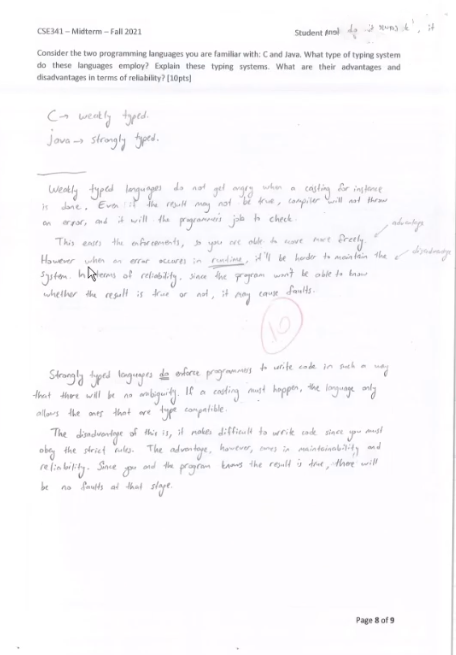 CSE341 – Midterm – Fall 2021
Student
Consider the two programming languages you are familiar with: C and Java. What type of typing system
do these languages employ? Explain these typing systems. What are their advantages and
disadvantages in terms of reliability? [10pts]
C → weakly typed.
java → strongly typed.
Weakly typed languages do not get angry when a casting for instance
is done. Even if the result may not be true, compiler will not throw
an error, and it will the programmers job to check.
This eases the enforcements, so you are able to move more freely. advantage
However when an error occures in runtime, it'll be harder to maintain the disadvantage
system. In terms of reliability, since the program won't be able to know
whether the result is true or not, it may cause faults.
10
Strongly typed languages do enforce programmers to write code in such a way
that there will be no ambiguity. If a casting must happen, the language only
allows the ones that are type compatible.
The disadvantage of this is, it makes difficult to write code since you must
obey the strict rules. The advantage, however, comes in maintainability and
reliability. Since you and the program knows the result is true, there will
be no faults at that stage.
Page 8 of 9